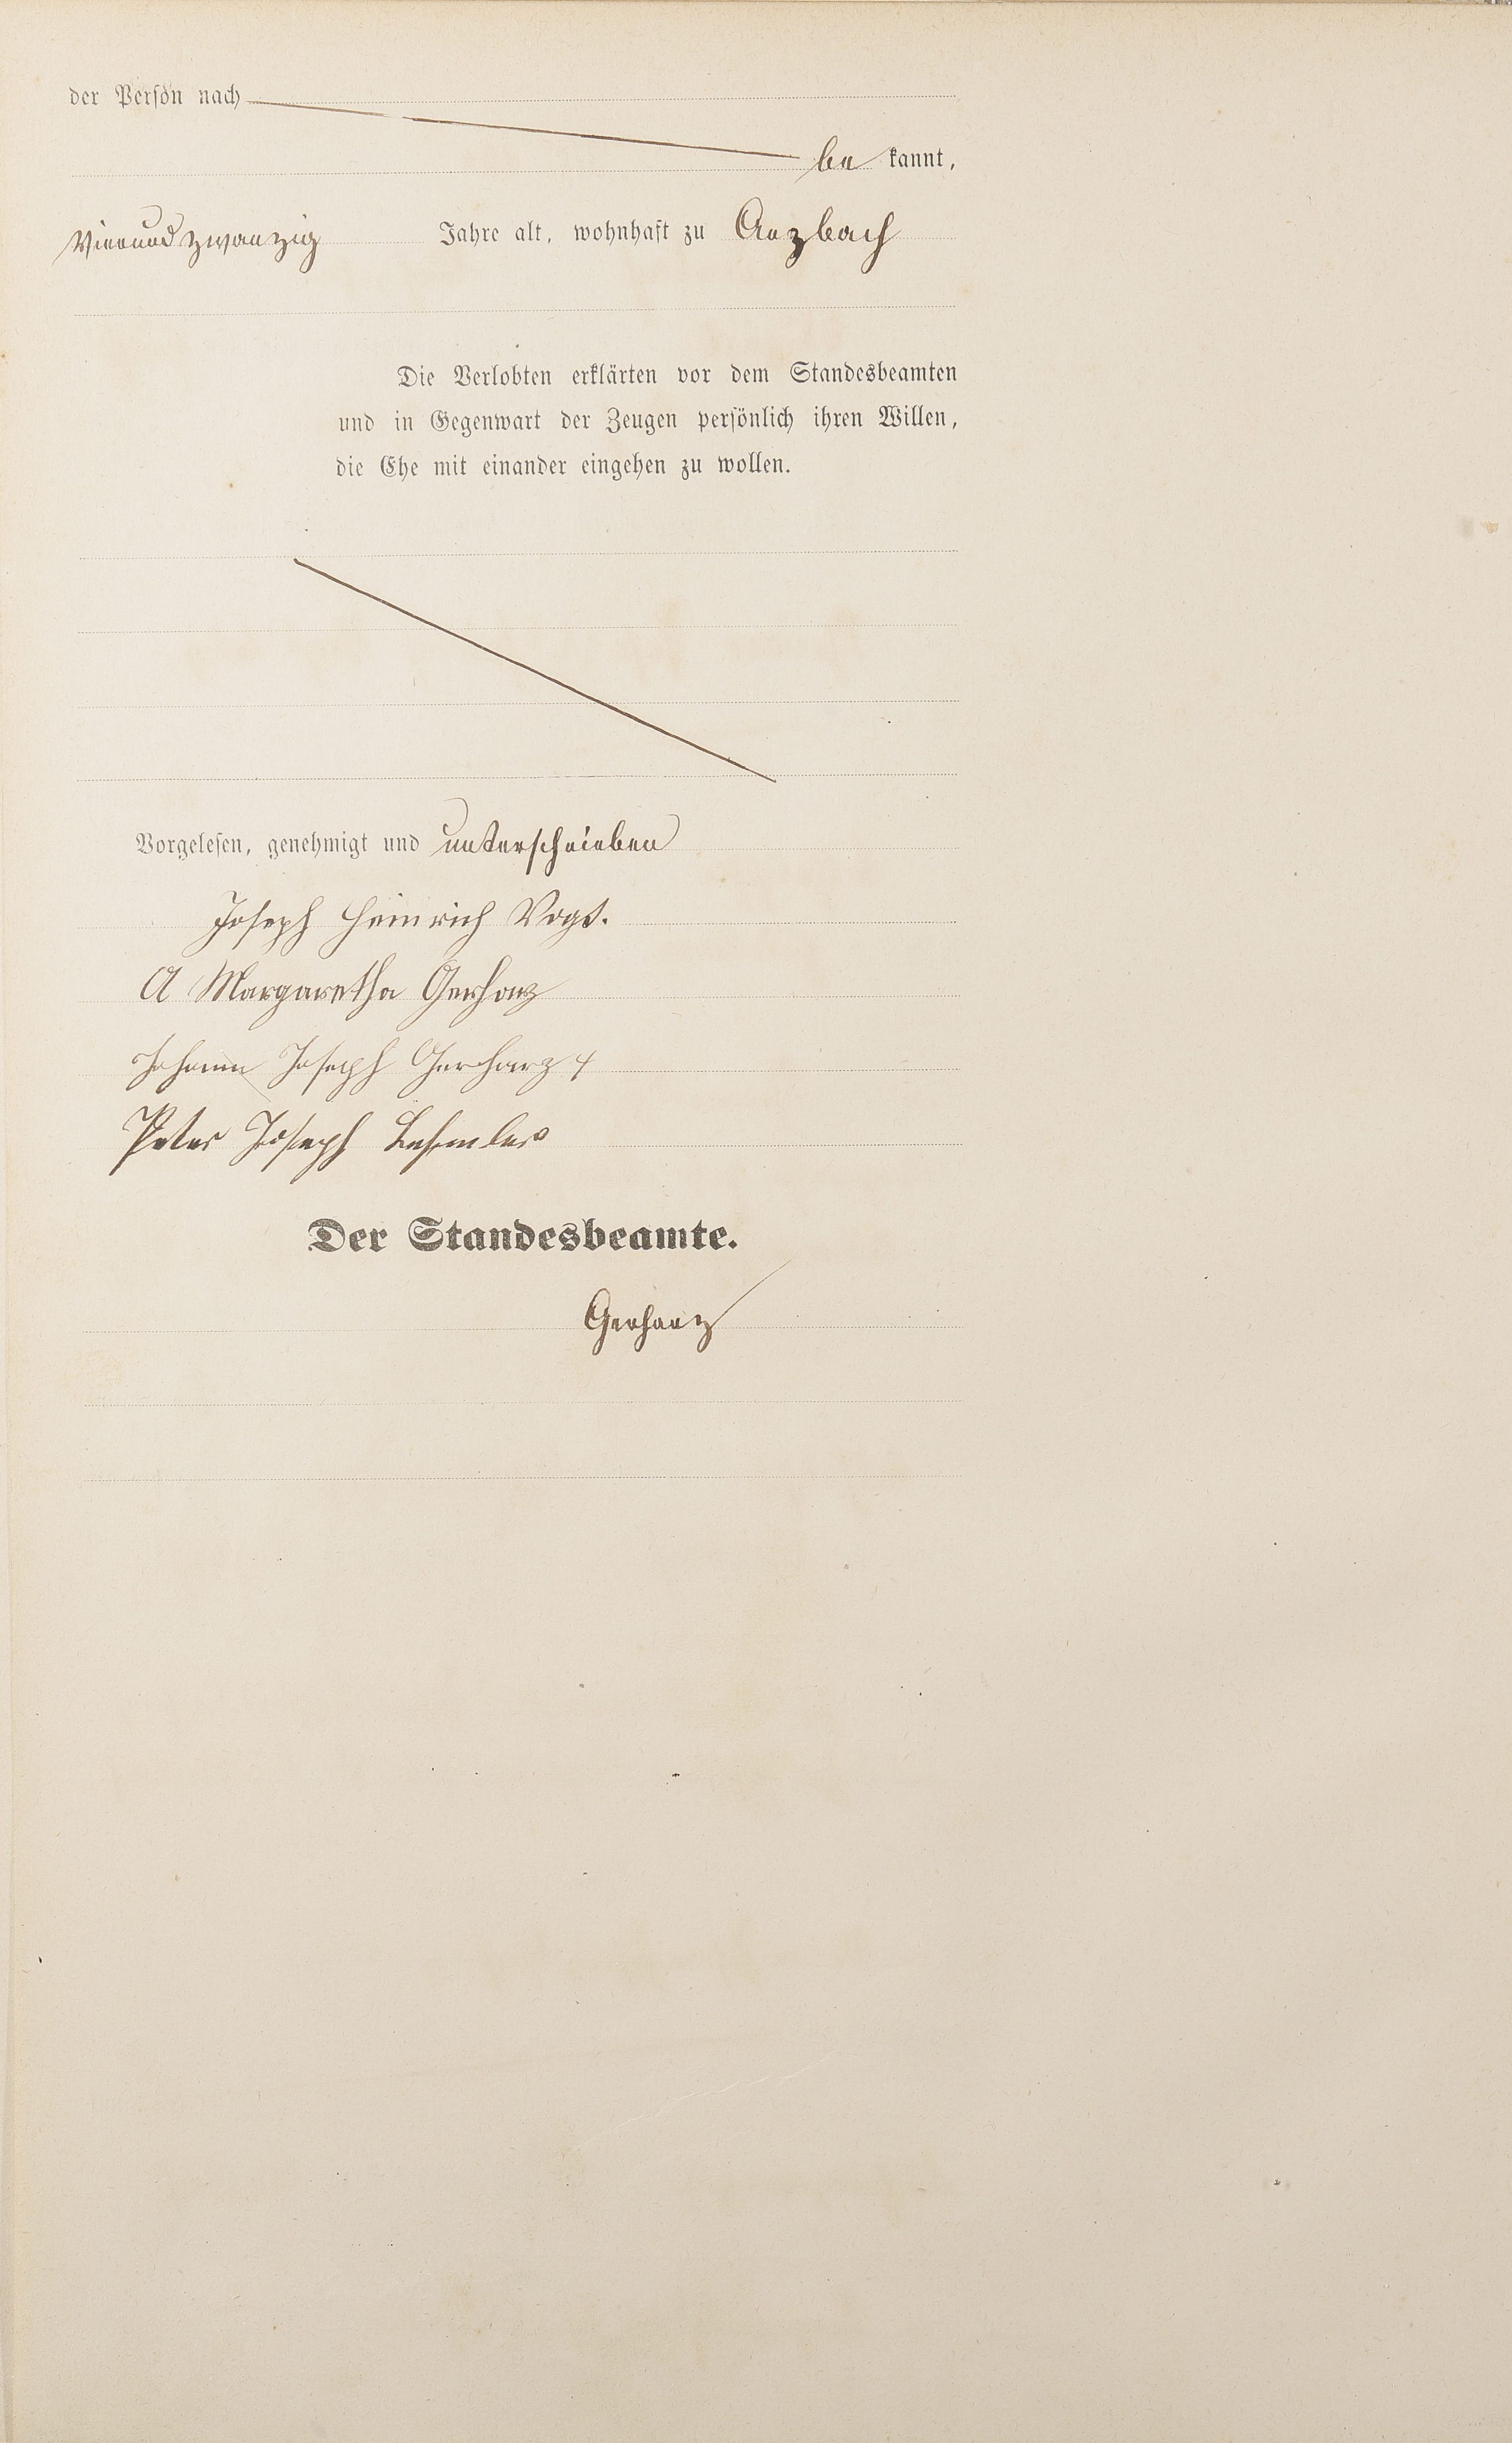 der Person nach
be kannt,
Vierundzwanzig Jahre alt, wohnhaft zu Arzbach
Die Verlobten erklärten vor dem Standesbeamten
und in Gegenwart der Zeugen persönlich ihren Willen,
die Ehe mit einander eingehen zu wollen.
Vorgelesen, genehmigt und unterschrieben
Joseph Heinrich Vogt.
A Margaretha Gerharz
Johann Joseph Gerharz
Peter Joseph
Der Standesbeamte.
Gerharz